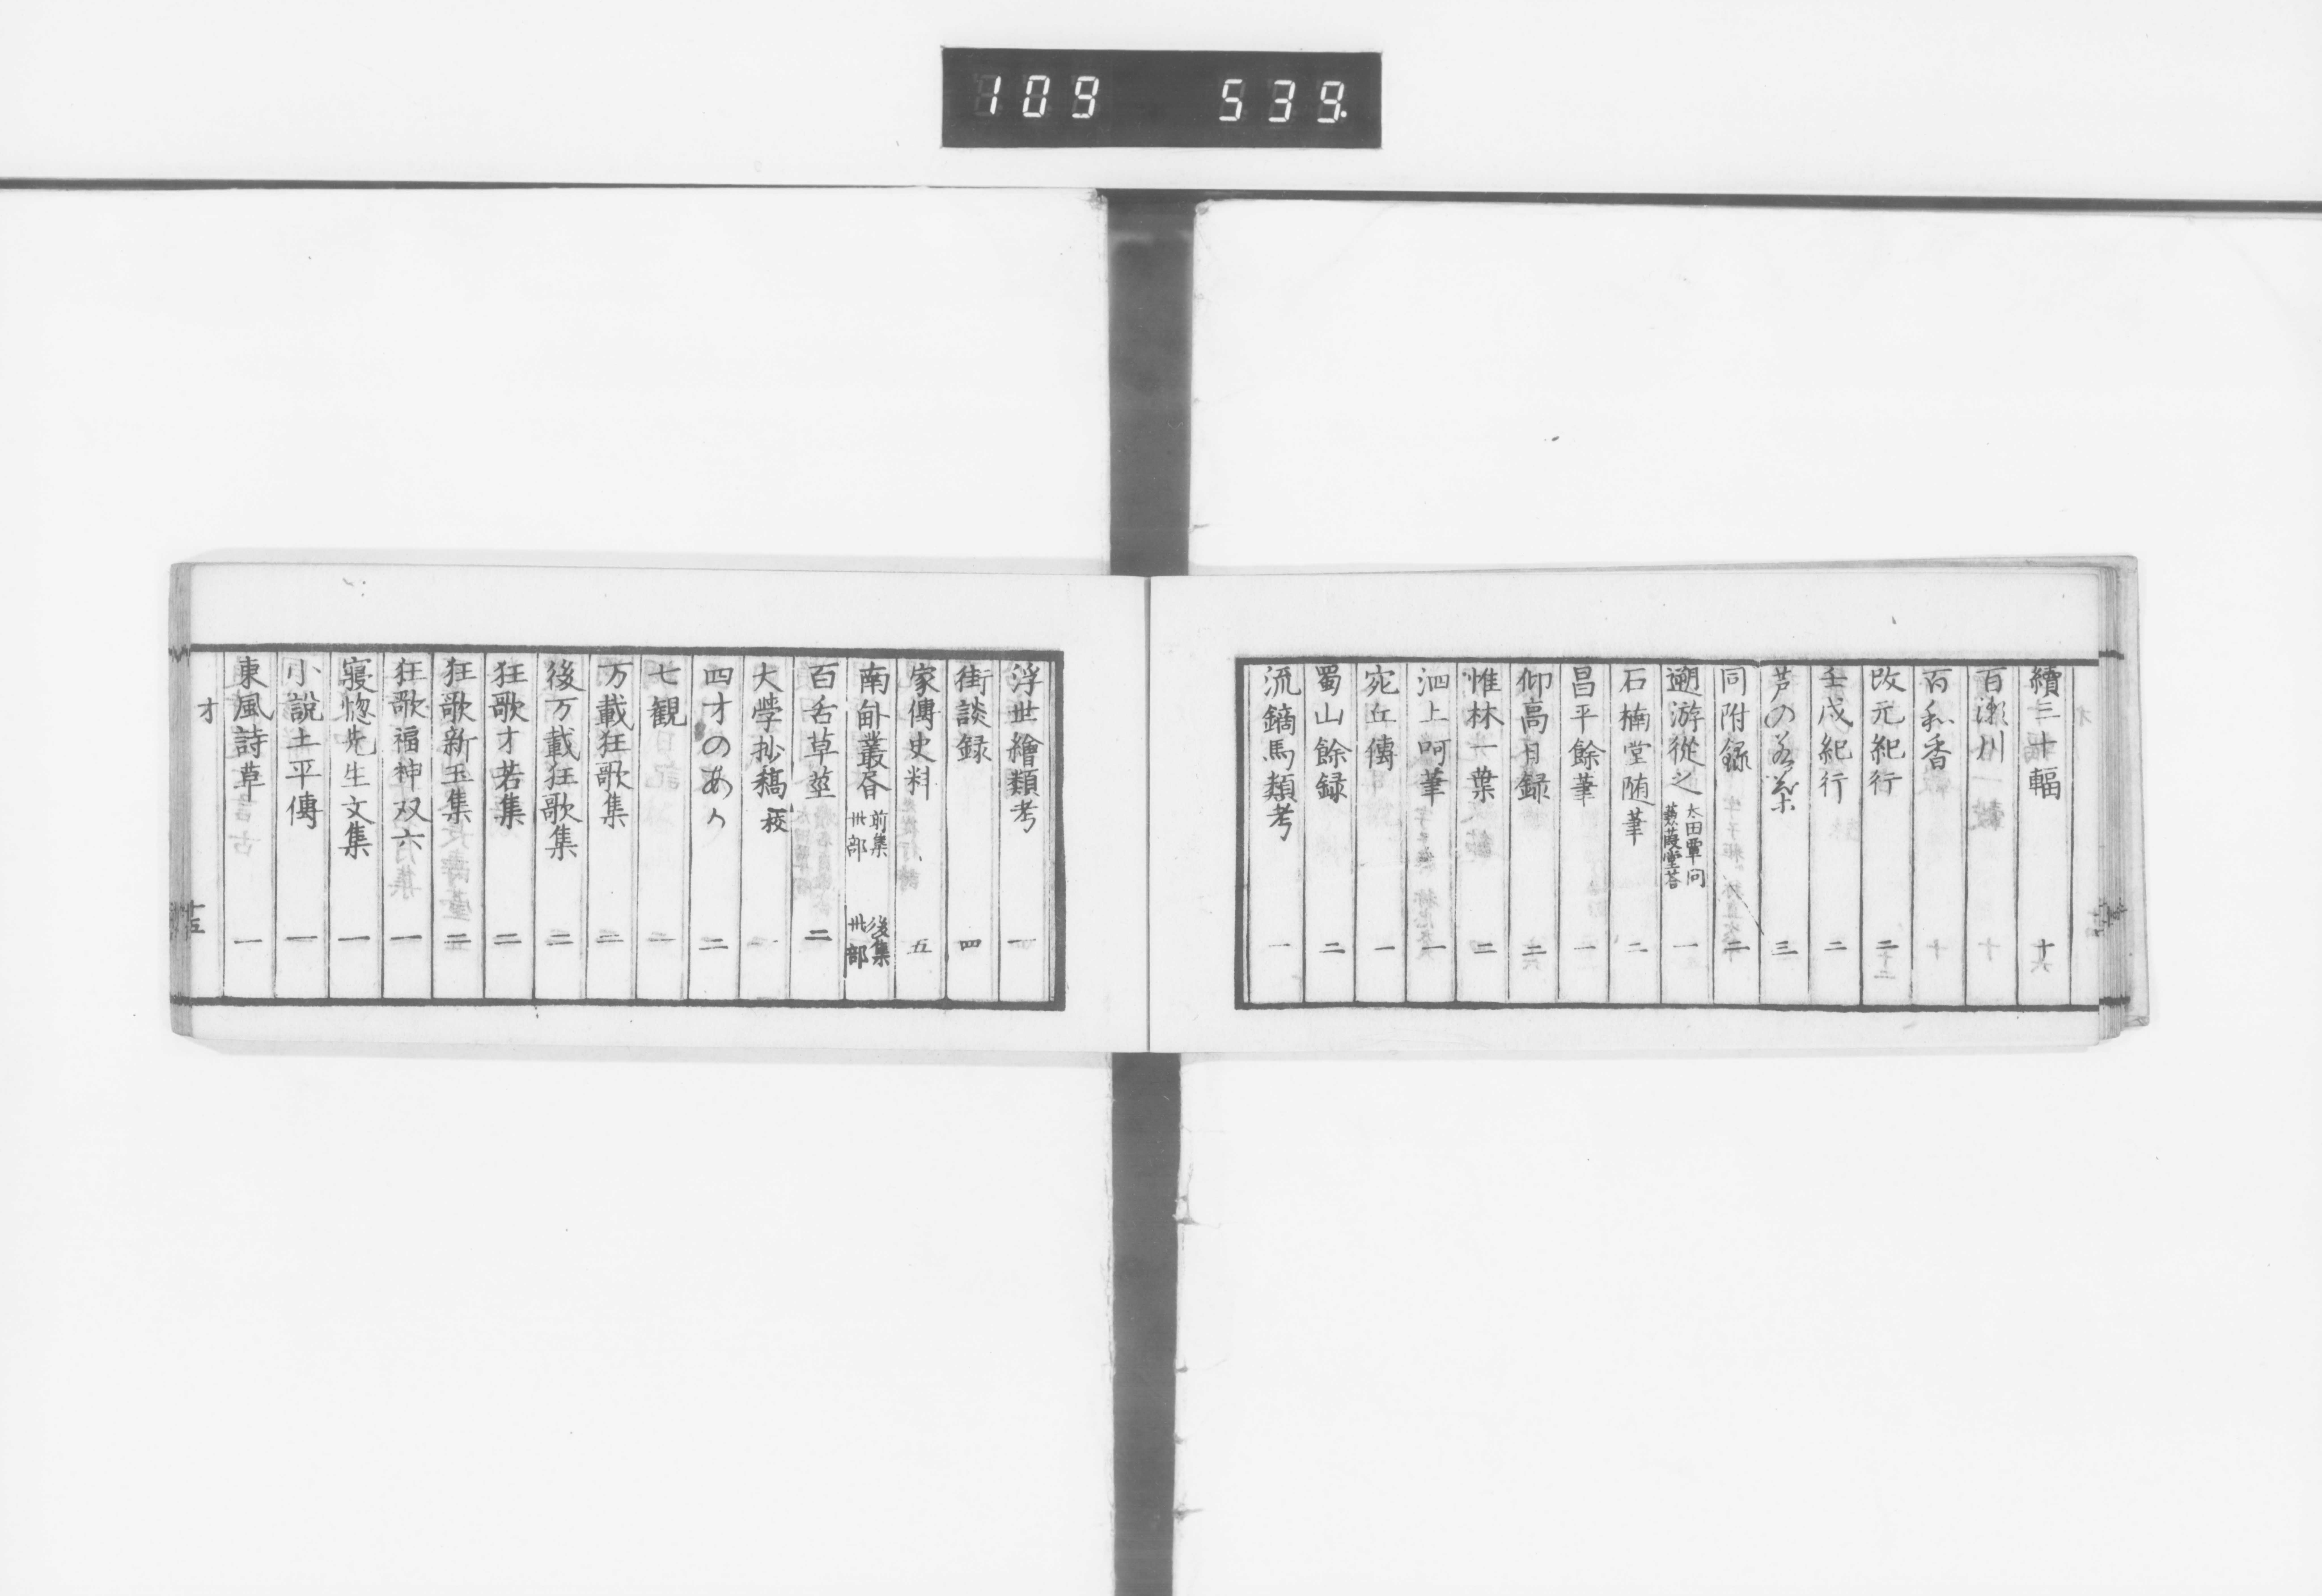 109 539.
續三十輻 十六
百瀬川 十
百和香 十
改元紀行 二
壬戌紀行 二
芦の若葉 三
同附録 二
遡游從之 太田覃問 蒹葭堂荅 一
石楠堂随筆 二
昌平餘筆 一
仰高日録 二
惟林一葉 二
泗上呵筆 一
宛丘傳 一
蜀山餘録 二
流鏑馬類考 一
浮世繪類考 一
街談録 四
家傳史料 五
南畝叢書 前集 卅部 後集 卅部
百舌草莖 二
大學抄稿 一校
四才のあか 二
七観 二
万載狂歌集 二
後万載狂歌集 二
狂歌才若集 二
狂歌新玉集 二
狂歌福神双六 一
寝惚先生文集 一
小説土平傳 一
東風詩草 一
才
十五